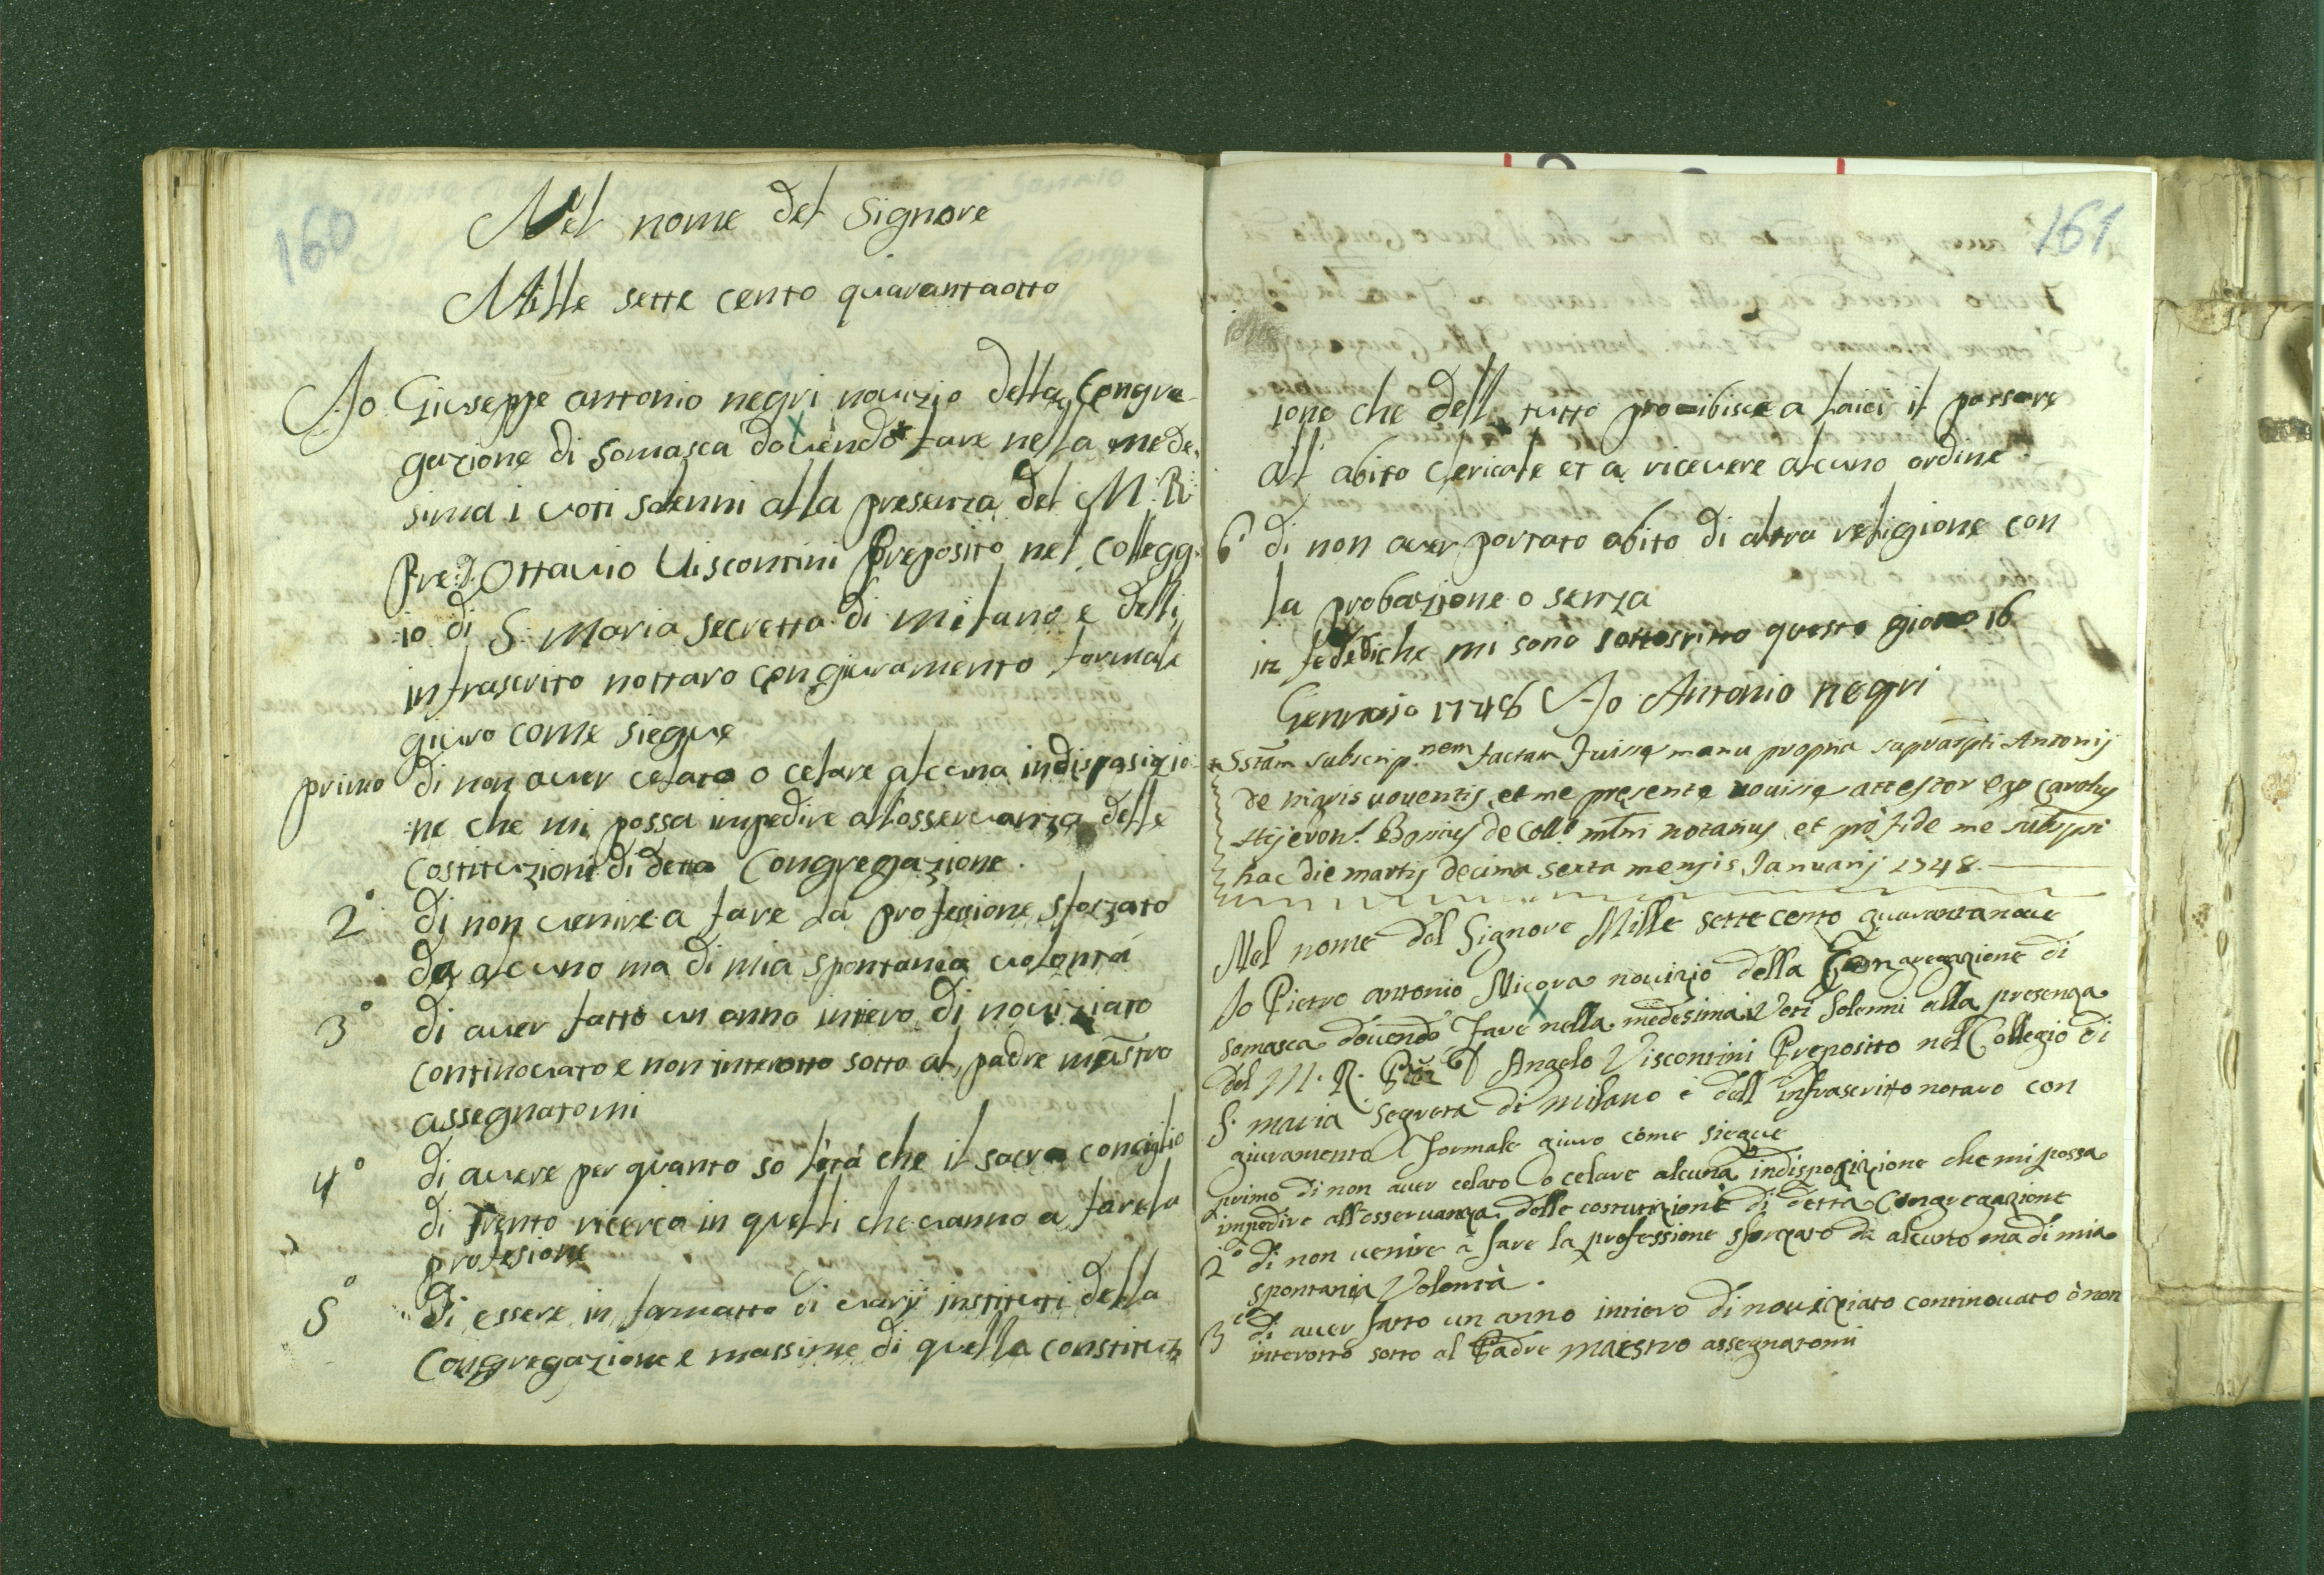 160
Nel nome del Signore
Mille sette cento quarantaotto
Io Giuseppe antonio negri novizio della Congre
gazione di Somasca dovendo fare nella mede,
sima i voti solenni alla presenza del M: R:
Pre: D. Ottavio Viscontini Preposito nel Collegg:
:io di S: Maria secretta di milano e delli
infrascrito nottaro con giuramento formale
giuro come siegue
primo di non aver celato o celare alcuna indisposizio:
:ne che mi possa impedire all'osservanza delle
costituzioni di detta Congregazione.
2° di non venire a fare la professione sforzato
da alcuno ma di mia spontanea volontà
3° di aver fatto un anno intero di noviziato
continovato e non interotto sotto al padre maestro
assegnatomi
4° di avere per quanto so l'età che il sacro conciglio
di Trento ricerca in quelli che vanno a fare la
profesione
5° Di essere in formatto di varij instituti della
Congregazione e massime di quella constituz
161
ione che dell tutto proibisce a laici il passare
all abito clericale et a ricevere alcuno ordine
6° di non aver portato abito di altra religione con
la probazione o senza
in fede di che mi sono sottoscritto questo giorno 16
Gennaio 1748 Io Antonio negri
Sstam subscrip.nem factam fuisse manu propria suprascripti Antonij
de nigris voventis, et me presente novisse attestor ego Carolus
Hyeron.s Bonius de Coll.o mlni notarius, et pro fide me subscripsi
hac die martis decima sexta mensis Januarij 1748.
Nel nome del Signore Mille sette cento quarantanove
Io Pietro antonio Nicora novizio della Congregazione di
somasca dovendo fare nella medesima i Voti solenni alla presenza
del M. R. Pre D Angelo Viscontini Preposito nel Collegio di
S. maria Segreta di milano e dell'infrascritto notaro con
giuramento formale giuro come siegue
primo di non aver celato o celare alcuna indisposizione che mi possa
impedire all'osservanza delle costituzioni di detta Congregazione
2° di non venire a fare la professione sforzato da alcuno ma di mia
spontania Volontà.
3 di aver fatto un anno intiero di noviziato continovato ò non
interotto sotto al Padre maestro assegnatomi